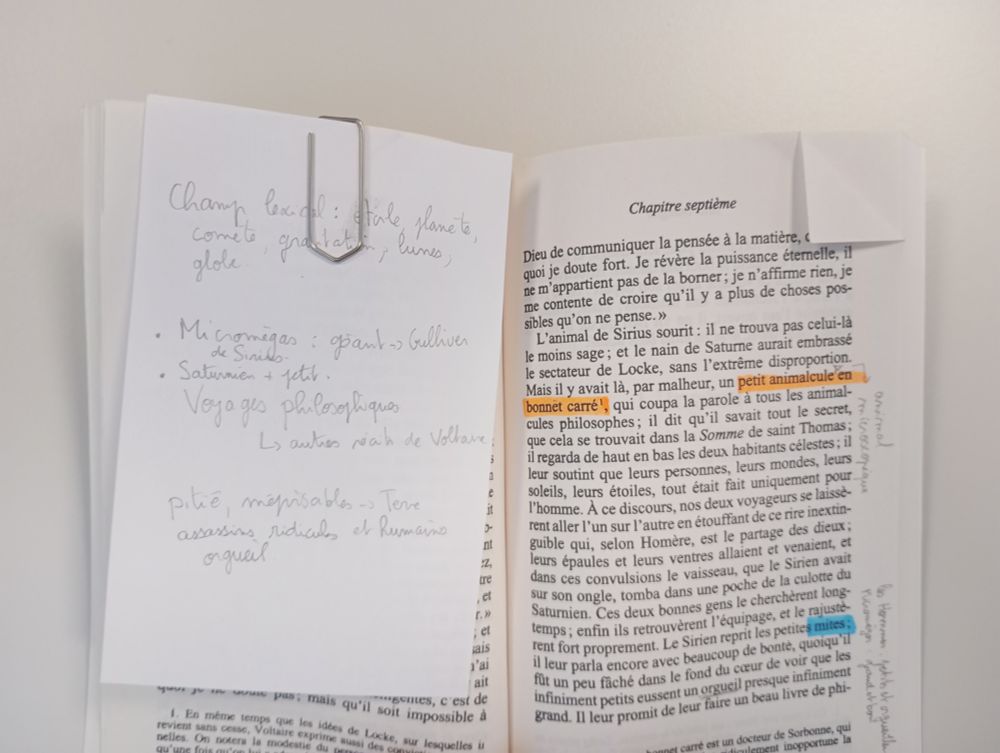 Champ lexical : étoile, planète,
comète, gravitation, lunes,
globe.
• Micromégas : géant -> Gulliver
de Sirius.
• Saturnien + petit.
Voyages philosophiques
↳ autres récits de Voltaire.
pitié, méprisables -> Terre
assassins ridicules et humains
orgueil.
s
e
it
nt
ez,
tre
, et
r. »
; et
ais
n'ai
ait
quoi je ne doute pas ; mais qu'il soit impossible à
1. En même temps que les idées de Locke, sur lesquelles il
revient sans cesse, Voltaire exprime aussi des
nelles. On notera la modestie du
qu'une fois qu'on lui a
Chapitre septième
Dieu de communiquer la pensée à la matière,
quoi je doute fort. Je révère la puissance éternelle, il
ne m'appartient pas de la borner ; je n'affirme rien, je
me contente de croire qu'il y a plus de choses pos-
sibles qu'on ne pense. »
L'animal de Sirius sourit : il ne trouva pas celui-là
le moins sage ; et le nain de Saturne aurait embrassé
le sectateur de Locke, sans l'extrême disproportion.
Mais il y avait là, par malheur, un petit animalcule en
bonnet carré¹, qui coupa la parole à tous les animal-
cules philosophes ; il dit qu'il savait tout le secret,
que cela se trouvait dans la Somme de saint Thomas ;
il regarda de haut en bas les deux habitants célestes ; il
leur soutint que leurs personnes, leurs mondes, leurs
soleils, leurs étoiles, tout était fait uniquement pour
l'homme. À ce discours, nos deux voyageurs se laissè-
rent aller l'un sur l'autre en étouffant de ce rire inextin-
guible qui, selon Homère, est le partage des dieux ;
leurs épaules et leurs ventres allaient et venaient, et
dans ces convulsions le vaisseau, que le Sirien avait
sur son ongle, tomba dans une poche de la culotte du
Saturnien. Ces deux bonnes gens le cherchèrent long-
temps ; enfin ils retrouvèrent l'équipage, et le rajustè-
rent fort proprement. Le Sirien reprit les petites mites ;
il leur parla encore avec beaucoup de bonté, quoiqu'il
fût un peu fâché dans le fond du cœur de voir que les
infiniment petits eussent un orgueil presque infiniment
grand. Il leur promit de leur faire un beau livre de phi-
bonnet carré est un docteur de Sorbonne, qui
inopportune la
animal
microscopique
les Hommes : petits et orgueil
Micromégas : grand et bon